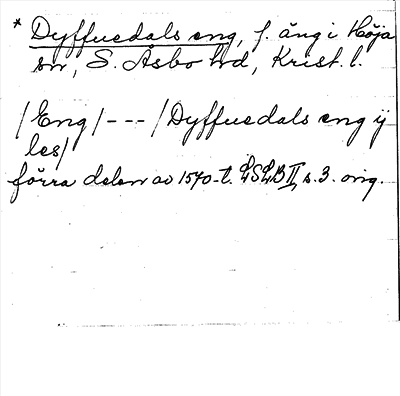 * Dyffuesdals eng, f. äng i Höja
sn, S. Åsbo hd, Krist. l.
/Eng/--- /Dyffuesdals eng ÿ
les/
förra delen av 1540-t. LSLB II, s. 3. orig.